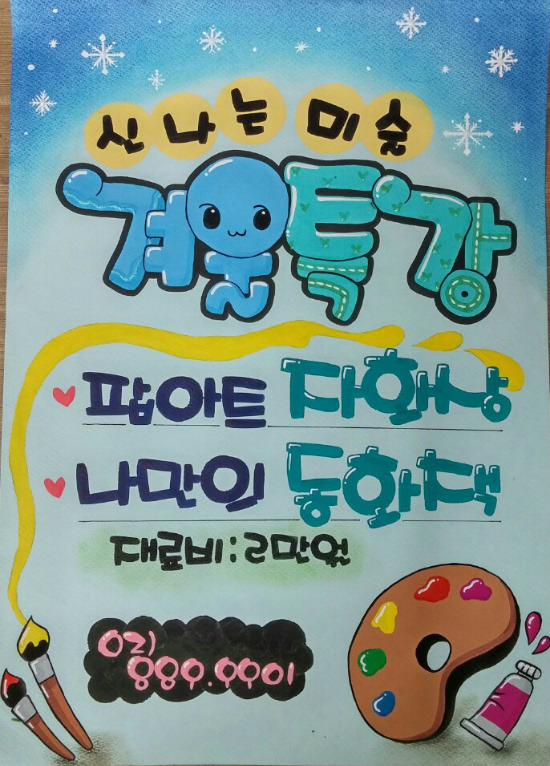 신나는 미술
겨울특강
팝아트 자화상
나만의 동화책
재료비:2만원